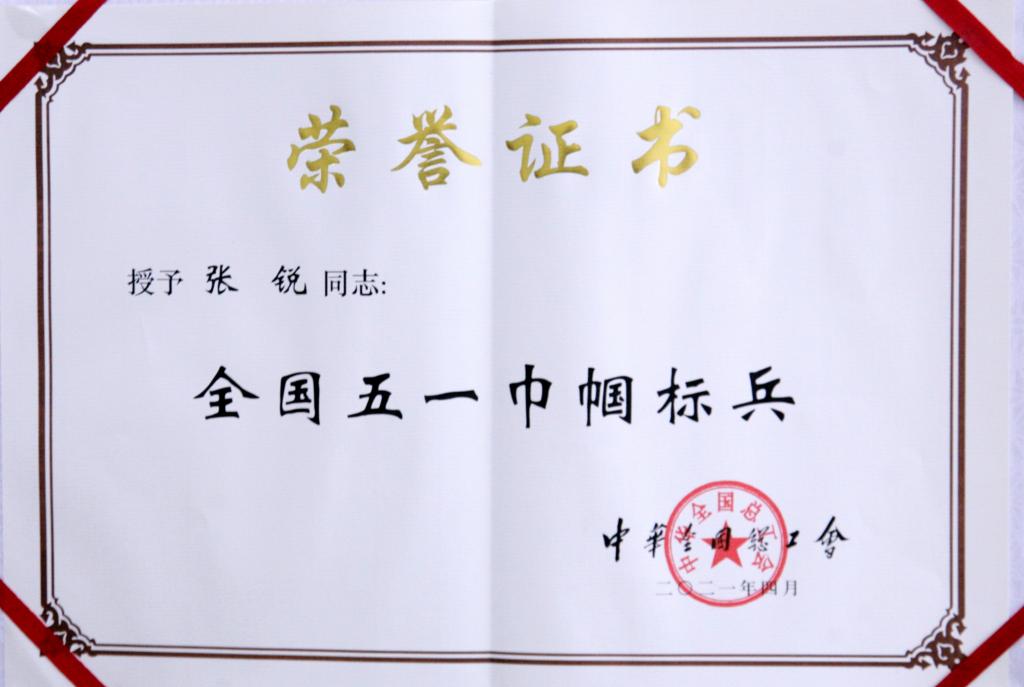 荣誉证书
授予 张 锐 同志:
全国五一巾帼标兵
中華全国總工會
中华全国总工会
二〇二一年四月